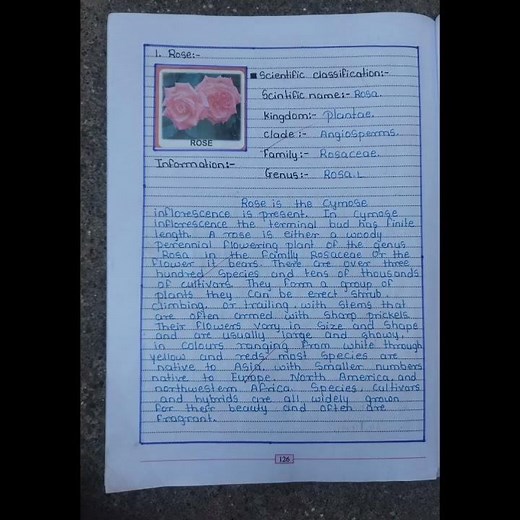 1. Rose:-
■ Scientific classification:-
Scintific name:- Rosa.
Kingdom:- Plantae.
clade:- Angiosperms.
Family:- Rosaceae.
Genus:- Rosa.L
ROSE
Information:-
Rose is the cymose
inflorescence is present. In cymose
inflorescence the terminal bud has finite
length. A rose is either a woody
perennial flowering plant of the genus
Rosa in the family Rosaceae or the
flower it bears. There are over three
hundred species and tens of thousands
of cultivars. They form a group of
plants they can be erect shrub.
climbing, or trailing, with stems that
are often armed with sharp prickels.
Their flowers vary in size and shape
and are usually large and showy,
in colours ranging from white through
yellow and reds. most species are
native to Asia, with smaller numbers
native to Europe, North America, and
northwestern Africa. Species, cultivars
and hybrids are all widely grown
for their beauty and often are
fragrant.
126